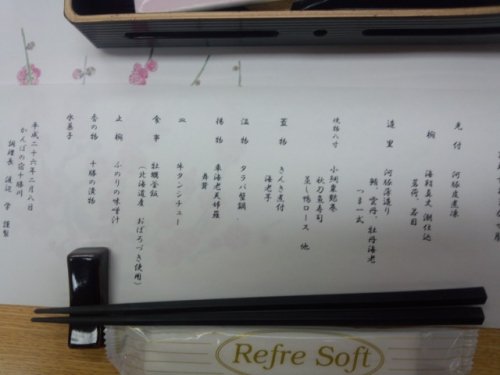 先付 河豚皮煮凍
椀
茗荷、若目
造里 河豚薄造り
鮪、雲丹、牡丹海老
つま一式
焼物八寸 小鯛
秋刀魚寿司
蒸し鴨ロース 他
蓋物 きんき煮付
海老芋
温物 タラバ蟹鍋
揚物 車海老
皿 牛タンシチュー
食事 牡蠣釜飯
(北海道産 おぼろづき使用)
止椀 ふのりの味噌汁
香の物 十勝の漬物
水菓子
平成二十六年二月八日
かんぽの宿十勝川
調理長 渡辺 学 謹製
Refre Soft